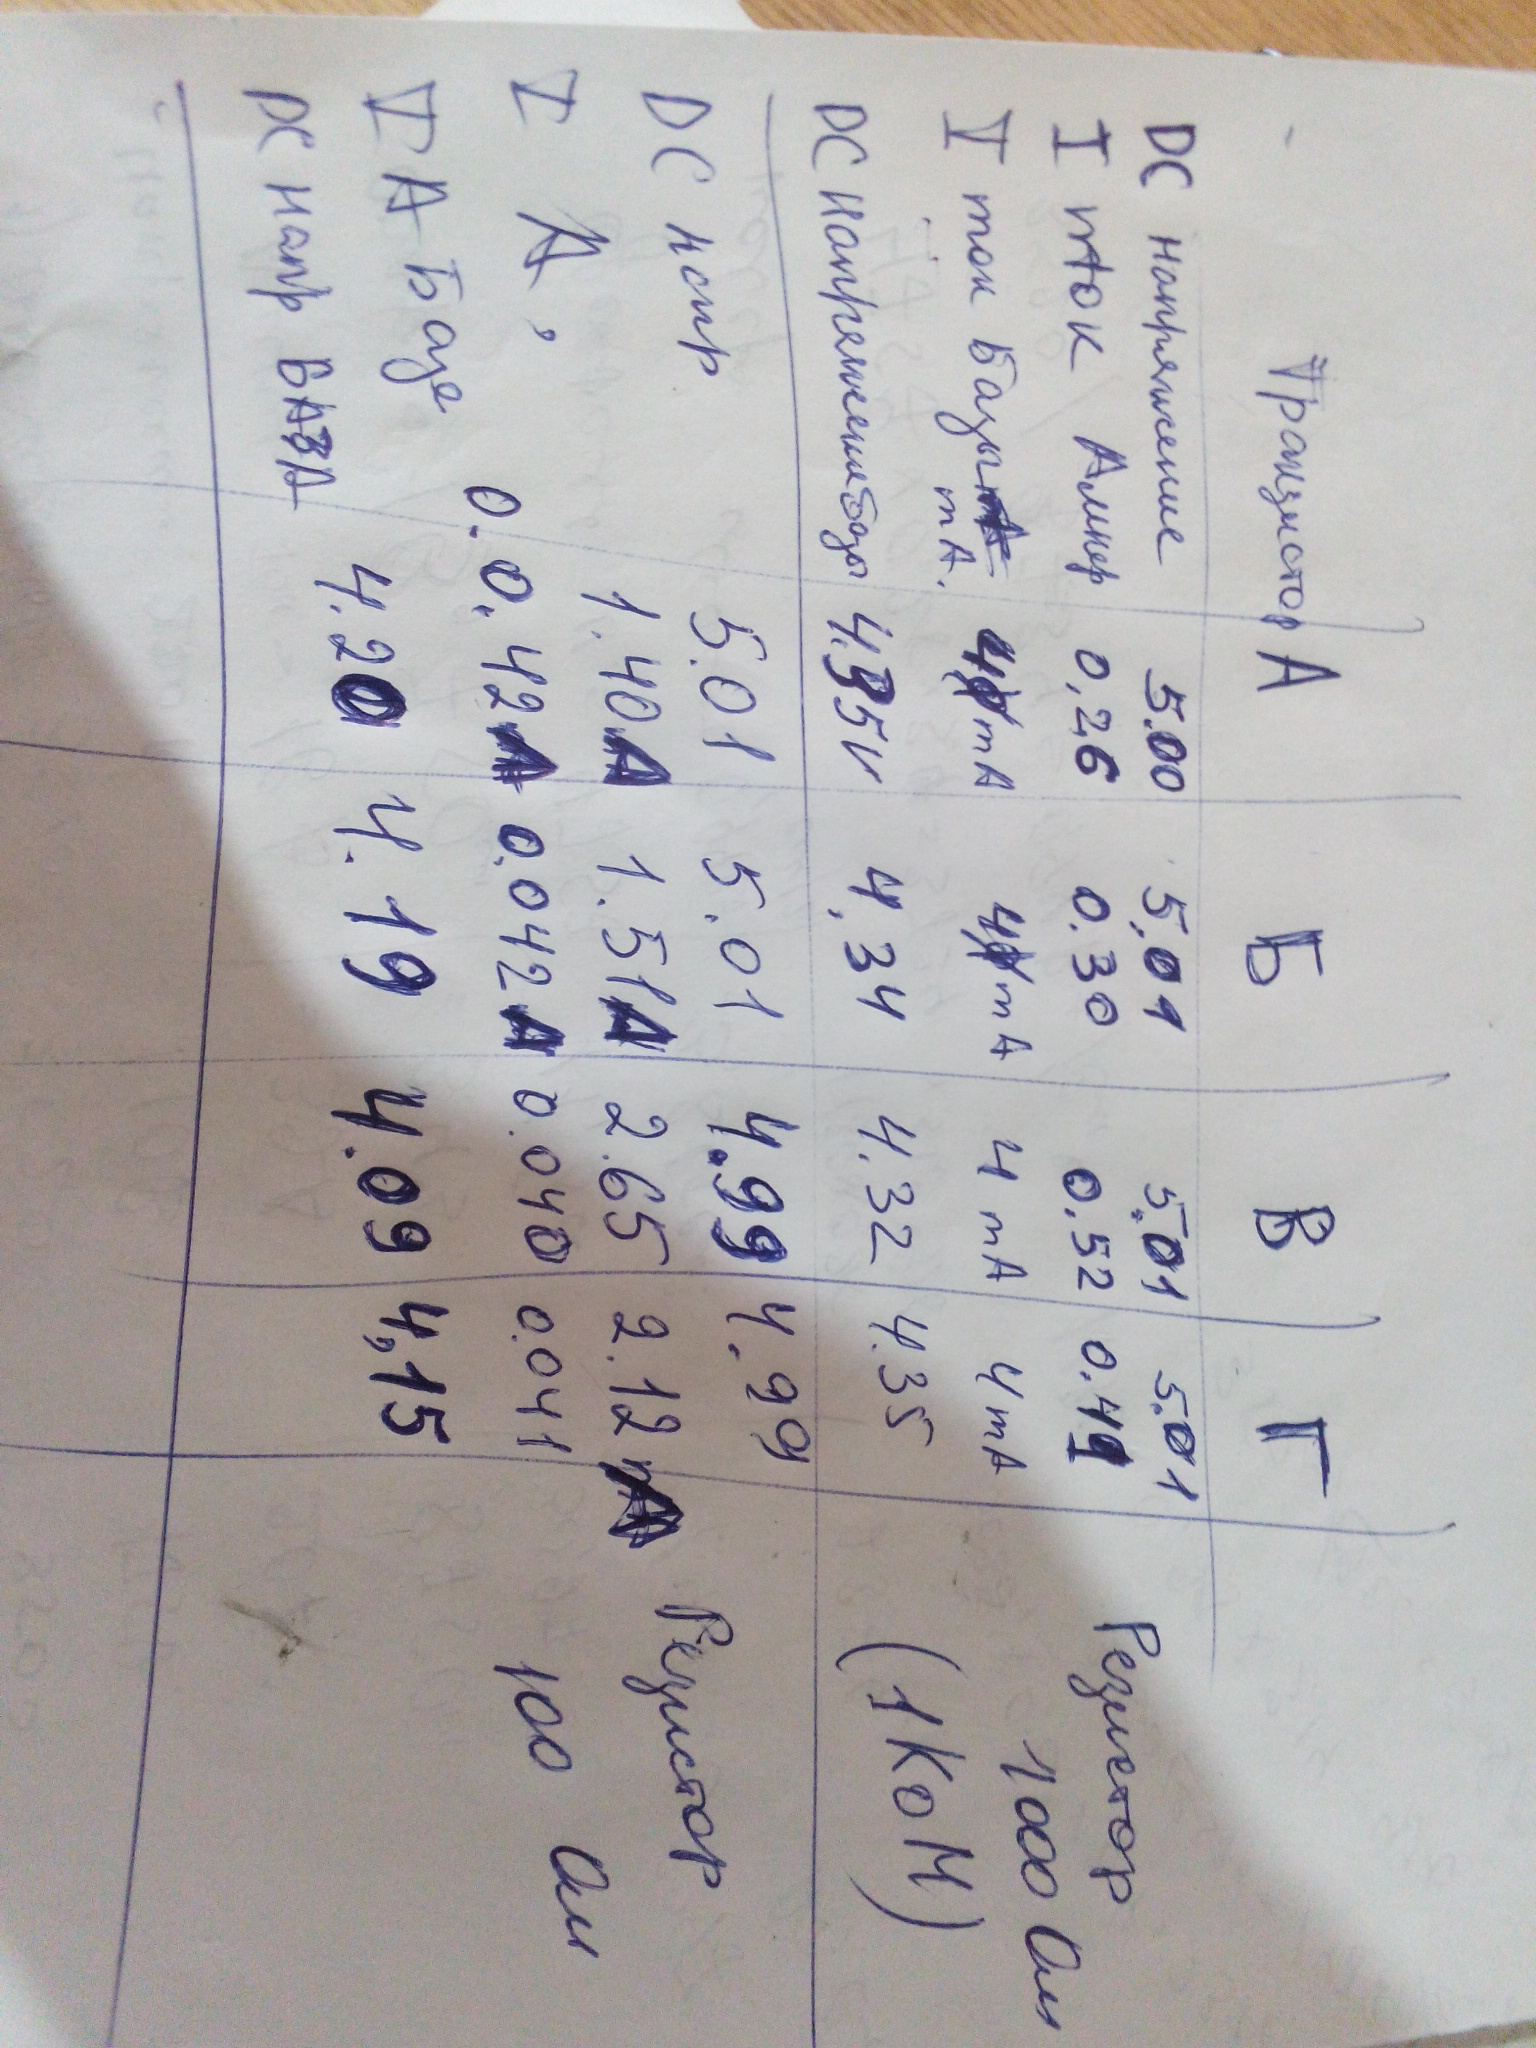 Транзистор А Б В Г
DC напряжение 5.00 5,01 5,01 5.01
I ток Ампер 0,26 0.30 0.52 0.49
I ток базы mA. 4 mA 4 mA 4 mA 4 mA
DC напряжение базы 4.35v 4,34 4.32 4.35
Резистор
1000 Ом
(1КоМ)
DC напр 5.01 5.01 4.99 4.99
I А, 1.40А 1.51А 2.65 2.12А
I А базе 0.0.42А 0.042А 0.040 0.041
DC напр БАЗА 4.20 4.19 4.09 4,15
Резистор
100 Ом